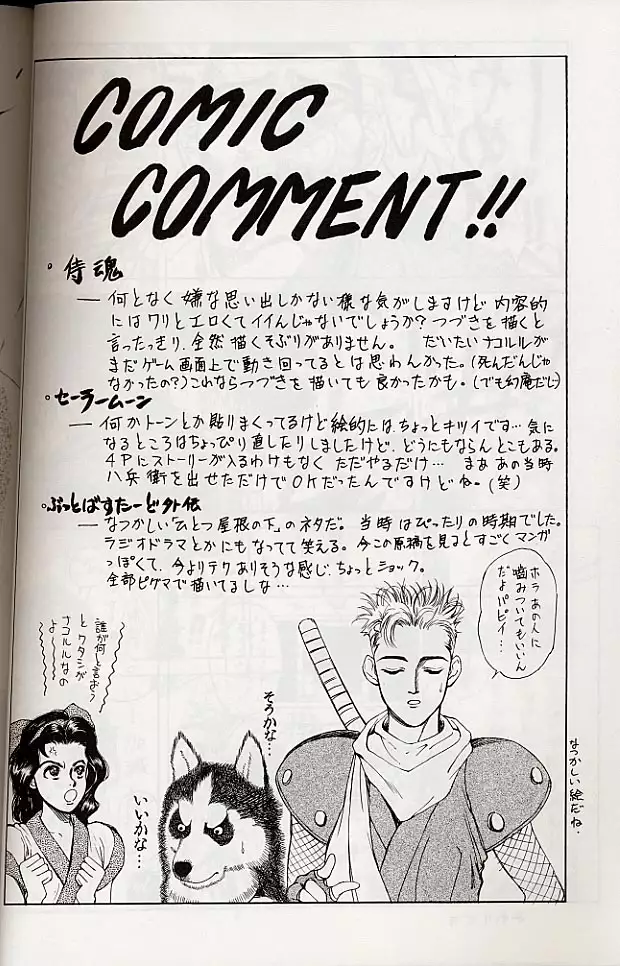 COMIC
COMMENT!!
侍魂
— 何となく嫌な思い出しかない様な気がしますけど内容的
にはワリとエロくてイイんじゃないでしょうか？つづきを描くと
言ったっきり、全然描くそぶりがありません。 だいたいナコルルが
まだゲーム画面上で動き回ってるとは思わんかった。(死んだんじゃ
なかったの？)これならつづきを描いても良かったかも。(でも幻庵だし)
セーラームーン
— 何かトーンとか貼りまくってるけど絵的には、ちょっとキツイです…気に
なるところはちょっぴり直したりしましたけど、どうにもならんとこもある。
4Pにストーリーが入るわけもなくただやるだけ… まああの当時
八兵衛を出せただけでOKだったんですけどね。(笑)
ぶっとばすたーど外伝
— なつかしい「ひとつ屋根の下」のネタだ。 当時はぴったりの時期でした。
ラジオドラマとかにもなってて笑える。今この原稿を見るとすごくマンガ
っぽくて、今よりテクありそうな感じ、ちょっとショック。
全部ピグマで描いてるしな…
ホラあの人に
噛みついてもいいん
だよパピィ…
誰が何と言おう
とワタシが
ナコルルなの
よ〜
そうかな…
いいかな…
なつかしい絵だね．